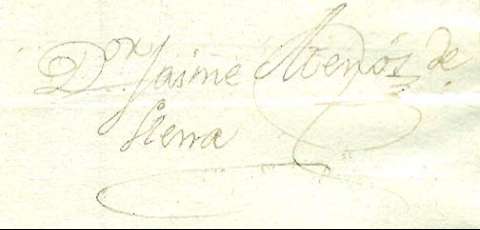 Don Jaime Menós de
Llena